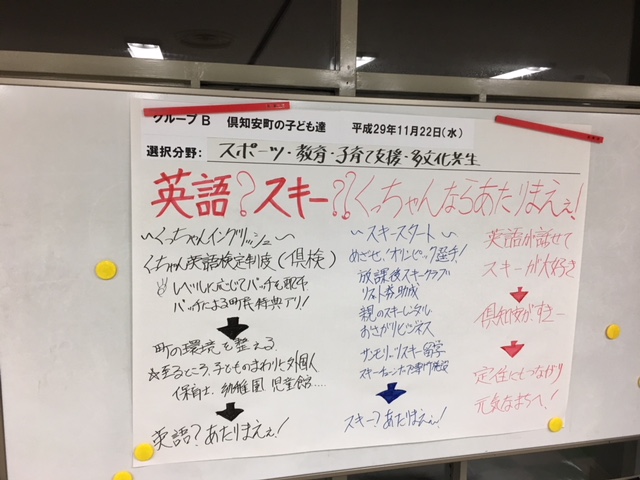 グループB 倶知安町の子ども達 平成29年11月22日(水)
選択分野: スポーツ・教育・子育て支援・多文化共生
英語?スキー??くっちゃんならあたりまえぇ!
〜くっちゃんイングリッシュ〜
くっちゃん英語検定制度(倶検)
レベルに応じてバッチを取得
バッチによる町民特典アリ!
町の環境を整える
至るところ、子どものまわりに外国人
保育士、幼稚園 児童館....
英語?あたりまえぇ!
〜スキースタート〜
めざせ!オリンピック選手!
放課後スキークラブ
リフト券助成
親のスキーレンタル
おさがりビジネス
サンモリッツスキー留学
スキー?あたりまえぇ!
英語が話せて
スキーが大好き
倶知安がすきー
定住にもつながり
元気なまちへ!